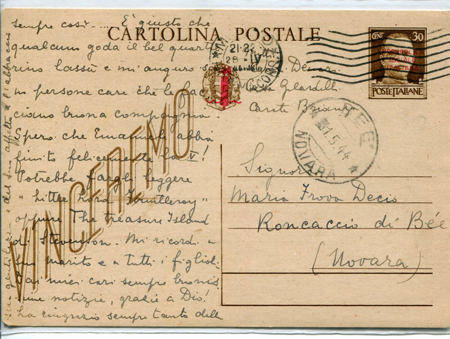 CARTOLINA POSTALE
30
POSTE ITALIANE
VINCEREMO
sempre così.... È giusto che
qualcuno goda il bel quartie
rino lassù e mi auguro
in persone care che
buona compagnia.
Spero che Emanuele abbia
finito felicemente la V!
Potrebbe fargli leggere
"Little Lord Fauntleroy"
oppure The Treasure Island
di Stevenson. Mi ricordi a
suo marito e a tutti i figlioli
Dai miei cari sempre buonis
sime notizie, grazie a Dio!
La ringrazio sempre tanto della
21-22
28 IV
BEE
1.5.44
NOVARA
Signora
Maria Frova Decio
Roncaccio di Bée
(Novara)